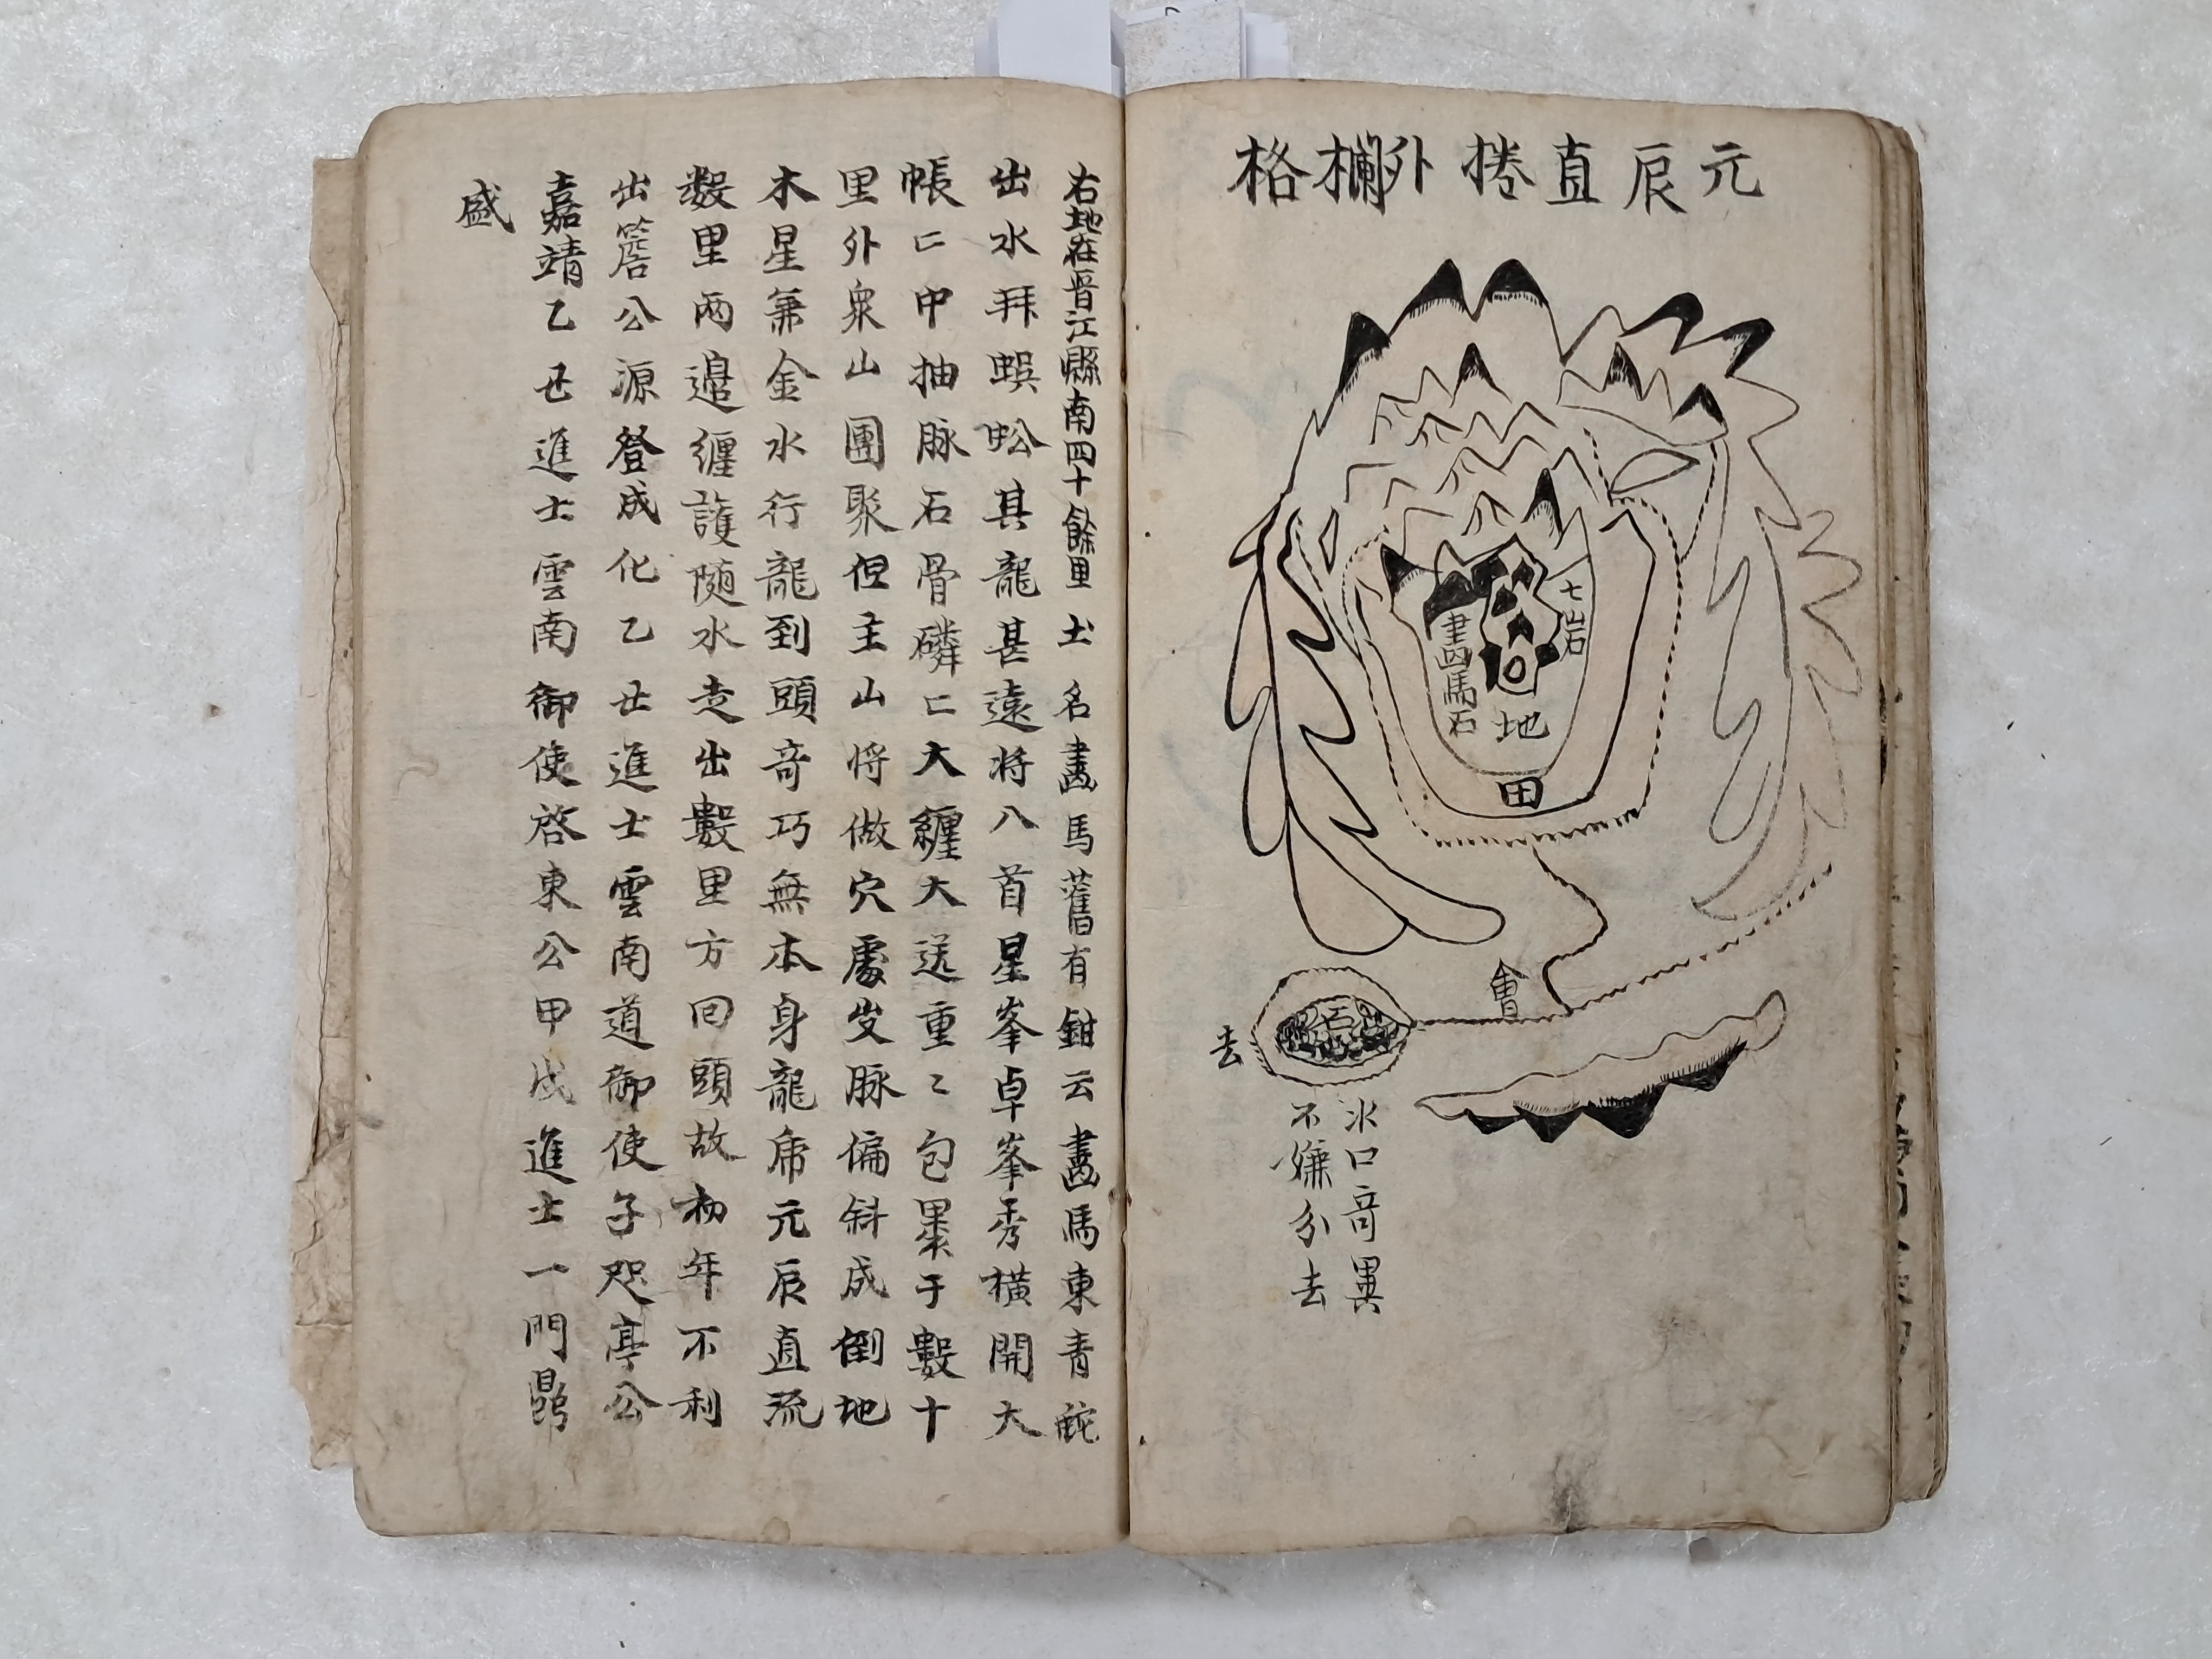 元辰直捲外欄格
七岩
畫馬石
地
田
會
石
去
水口奇異
不嫌分去
右地在晉江縣南四十餘里土名畫馬舊有鉗云畫馬東青蛇
出水拜蜈蚣其龍甚遠將八首星峯卓峯秀橫開大
帳匚中抽脉石骨磷匚大纏大送重〻包裹于數十
里外衆山團聚但主山将做穴處发脉偏斜成倒地
木星兼金水行龍到頭奇巧無本身龍虎元辰直流
数里两邉纏護随水走出數里方回頭故初年不利
出公源登成化乙丑進士雲南道御使子咫亭公
嘉靖乙丑進士雲南御使啓東公甲戌進士一門鼎
盛